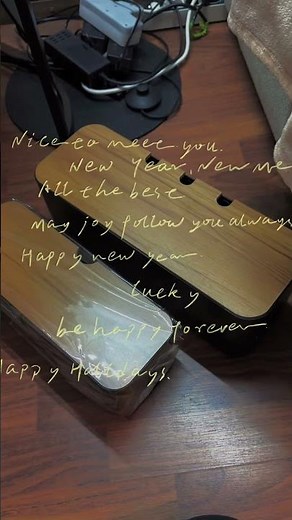 Nice to meet you.
New Year, New me
All the best
May joy follow you always
Happy new year
Lucky
be happy forever
Happy Holidays.